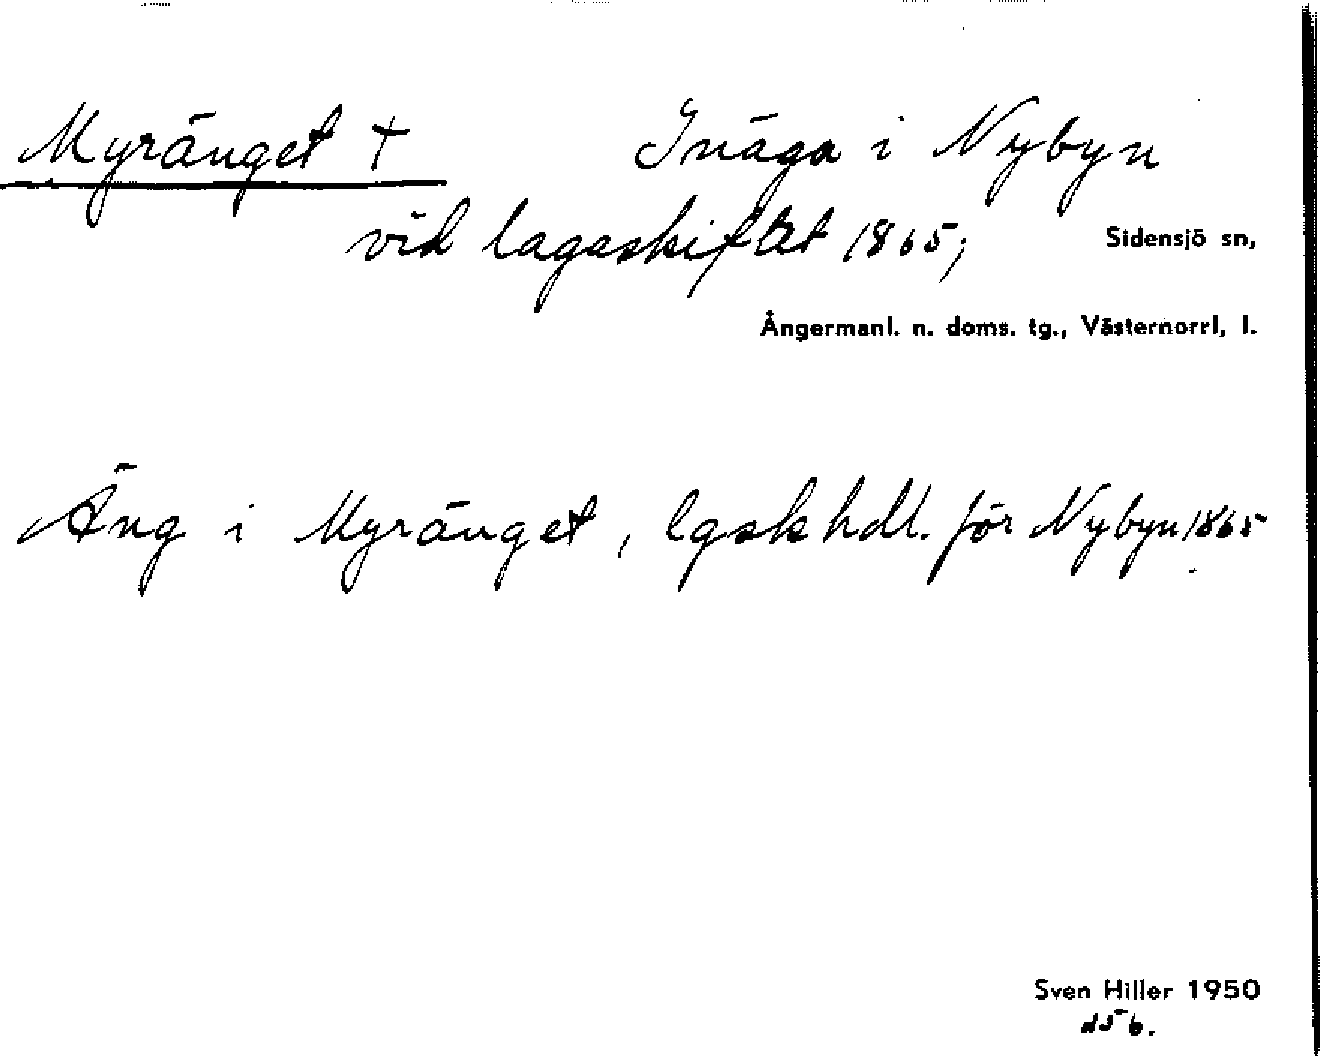 Myränget † Inäga i Nybyn
vid lagaskiftet 1865;
Sidensjö sn,
Ångermanl. n. doms. tg., Västernorrl, l.
Äng i Myränget, lgsk hdl. för Nybyn 1865
Sven Hiller 1950